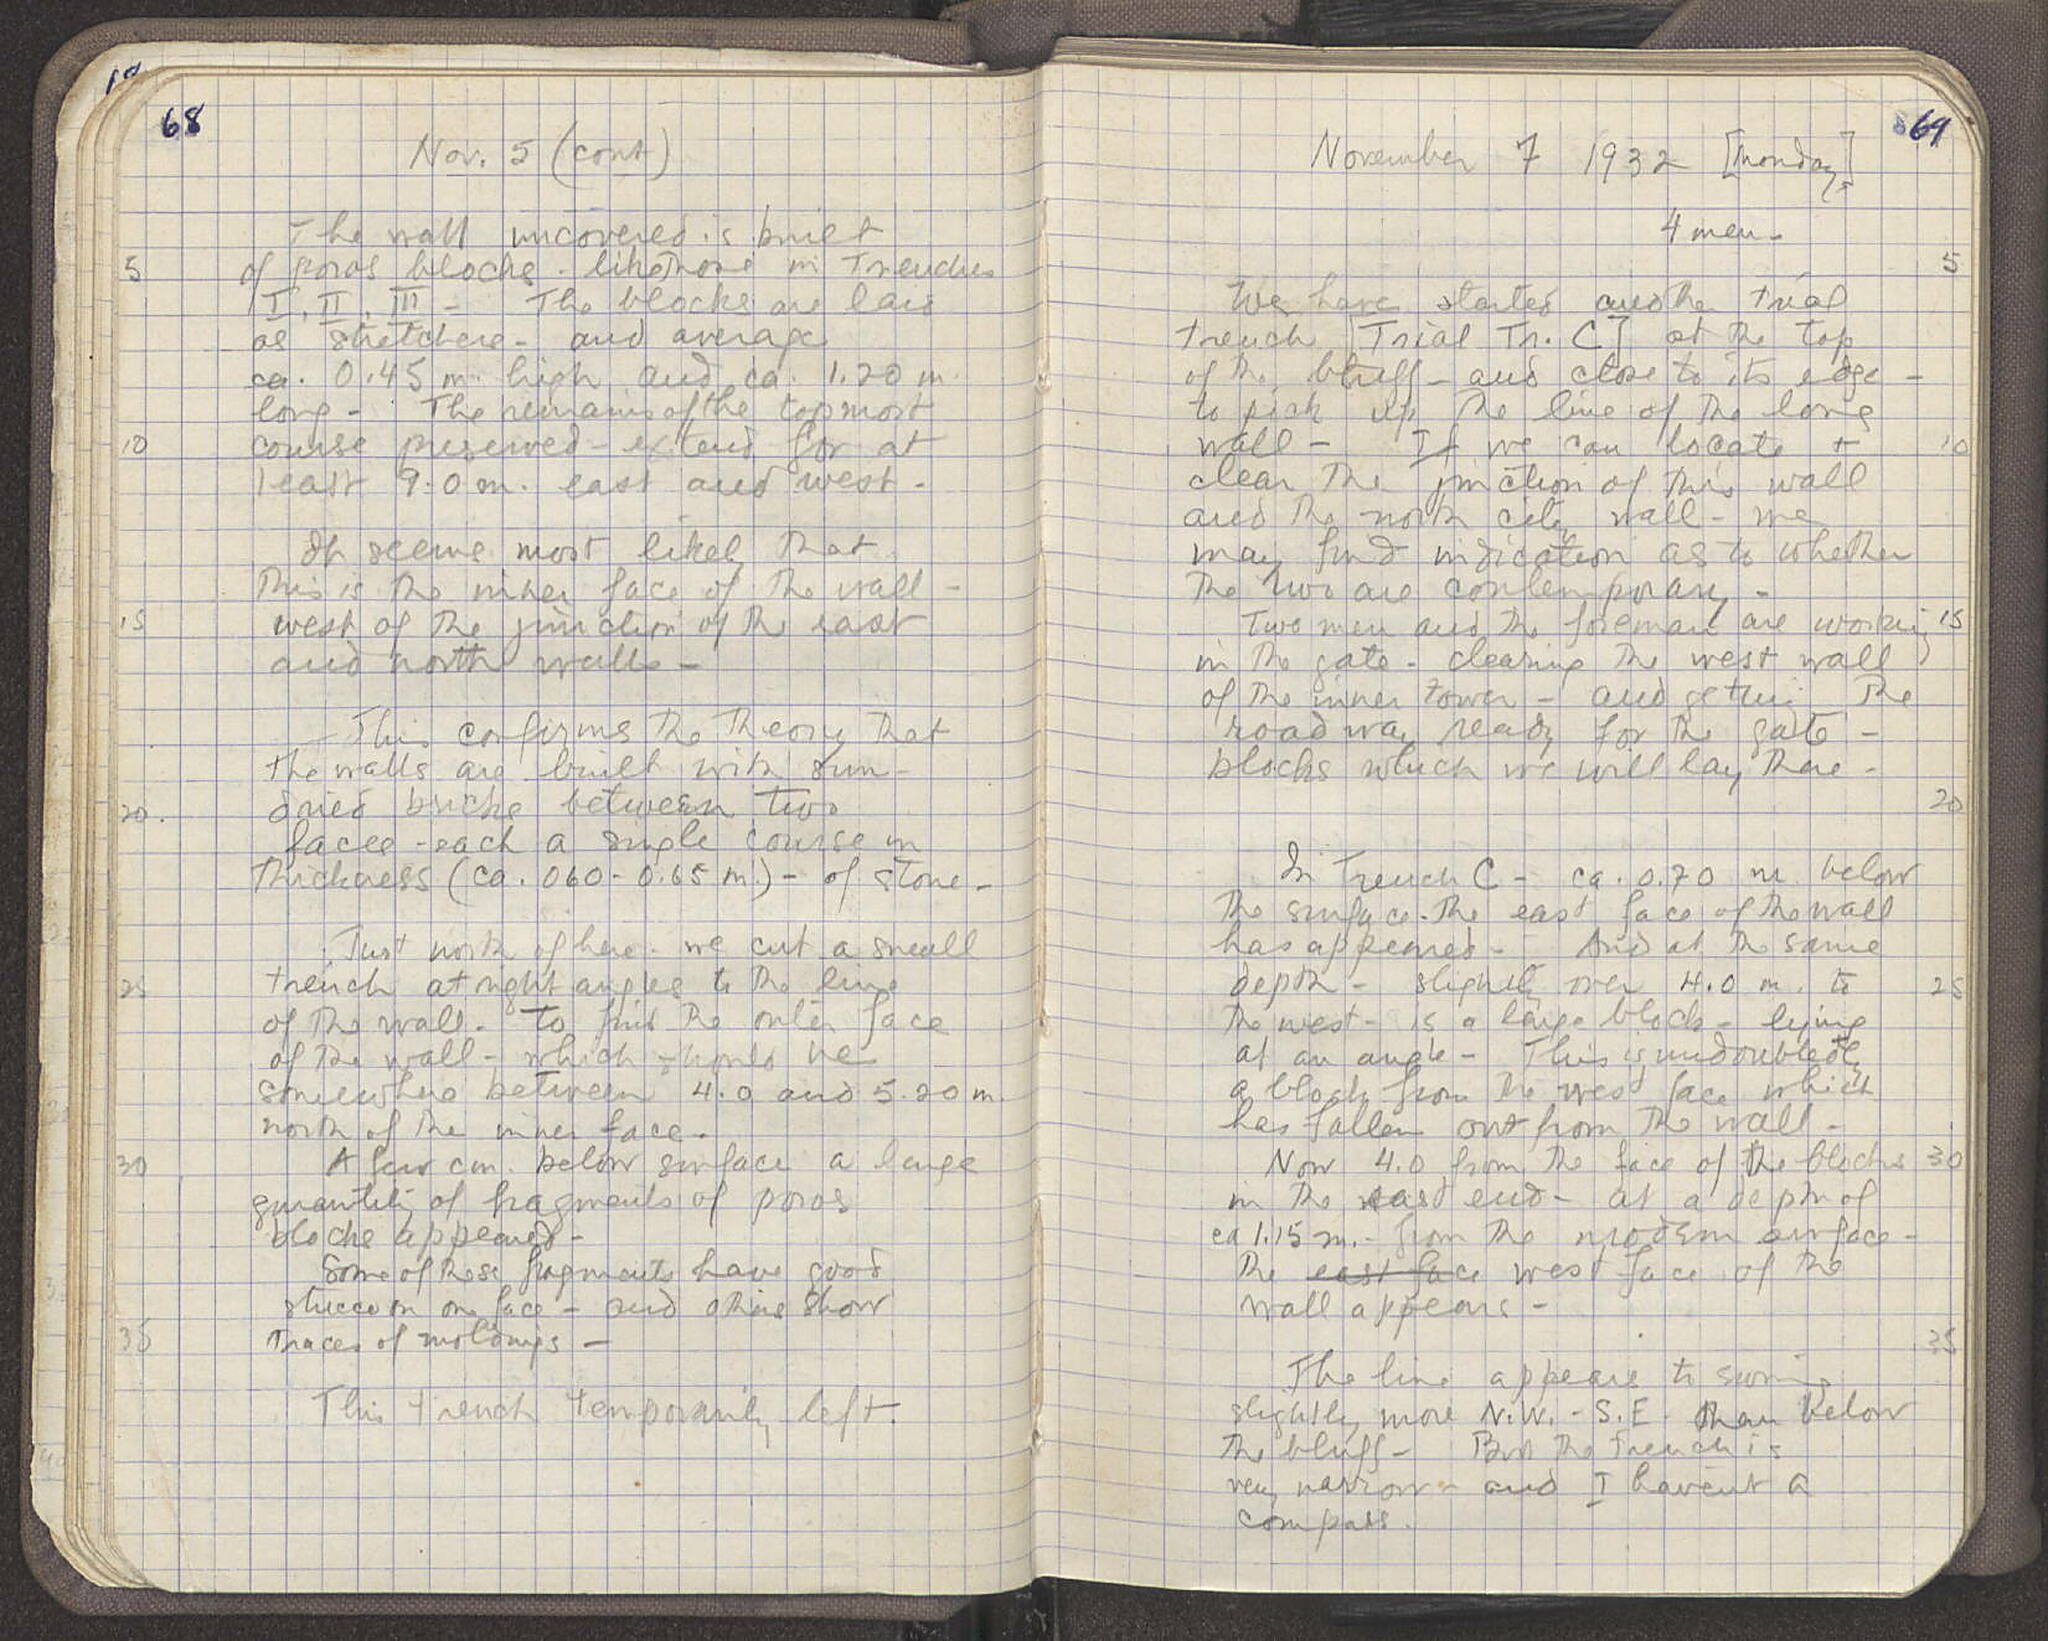 68
Nov. 5 (cont)
The wall uncovered is built
5 of poros blocks - like those in Trenches
I, II, III - The blocks are laid
as stretchers - and average
ca. 0.45 m. high and ca. 1.20 m.
long - The remains of the topmost
10 course preserved - extend for at
least 9.0 m. east and west -
It seems most likely that
this is the inner face of the wall -
15 west of the junction of the east
and north walls -
This confirms the theory that
the walls are built with sun-
20. dried bricks between two
faces - each a single course in
thickness (ca. 060 - 0.65 m.) - of stone -
Just north of here - we cut a small
25 trench at right angles to the line
of the wall - to find the outer face
of the wall - which should be
somewhere between 4.0 and 5.20 m.
north of the inner face -
30 A few cm. below surface a large
quantity of fragments of poros
blocks appeared -
Some of these fragments have good
stucco on one face - and others show
35 traces of moldings -
This trench temporarily left.
69
November 7 1932 [Monday]
4 men -
5
We have started another trial
trench [Trial Tr. C] at the top
of the bluff - and close to its edge -
to pick up the line of the long
wall - If we can locate + 10
clear the junction of this wall
and the north city wall - we
may find indication as to whether
the two are contemporary -
Two men and the foreman are working 15
in the gate - clearing the west wall
of the inner tower - and getting the
roadway ready for the gate -
blocks which we will lay there -
20
In Trench C - ca. 0.70 m. below
the surface - the east face of the wall
has appeared - And at the same
depth - slightly over 4.0 m. to 25
the west - is a large block - lying
at an angle - This is undoubtedly
a block from the west face which
has fallen out from the wall -
Now 4.0 from the face of the blocks 30
in the east end - at a depth of
ca 1.15 m. - from the modern surface -
the east face west face of the
wall appears -
35
The line appears to swing
slightly more N.W. - S.E. than below
the bluff - But the trench is
very narrow - and I havent a
compass.